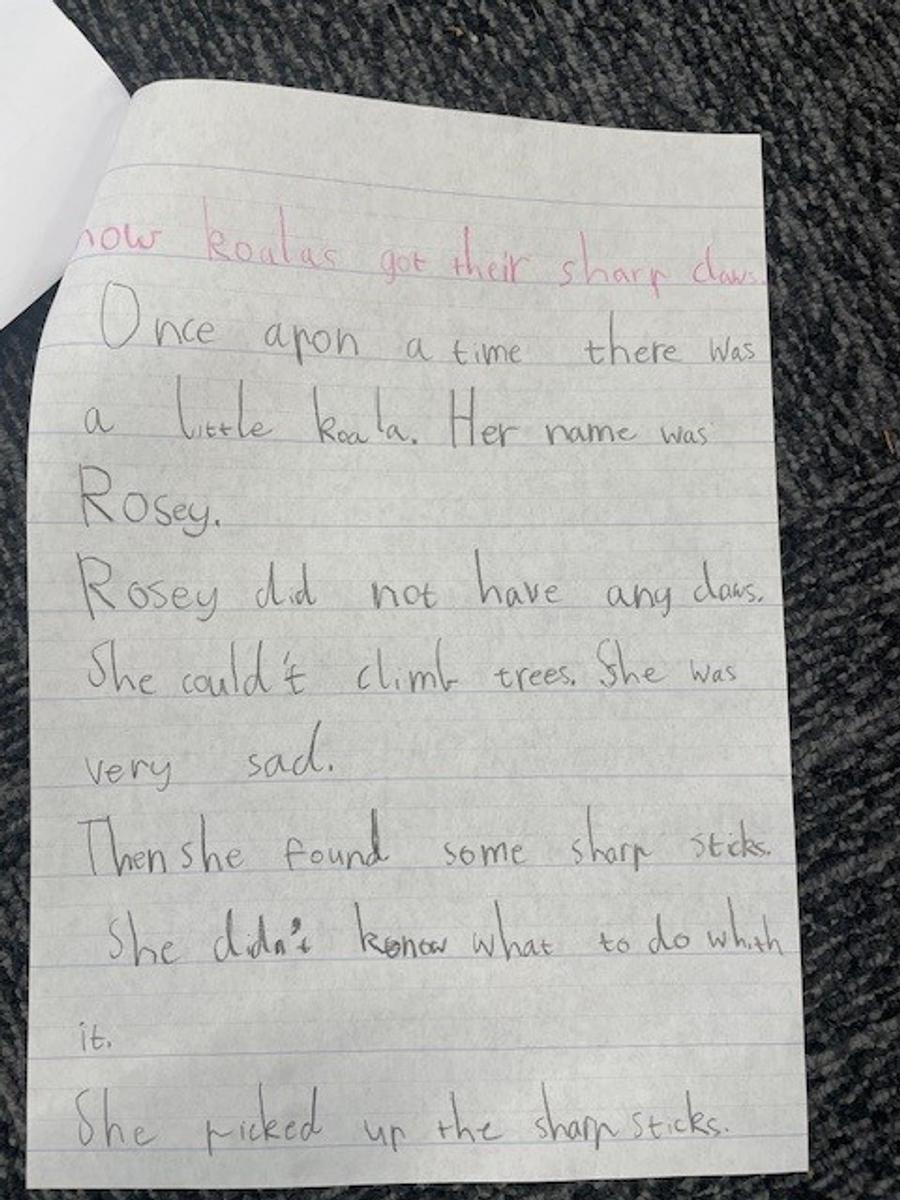 how koalas got their sharp claws.
Once apon a time there was
a little koala. Her name was
Rosey.
Rosey did not have any claws.
She could't climb trees. She was
very sad.
Then she found some sharp sticks.
She didn't konow what to do whith
it.
She picked up the sharp sticks.